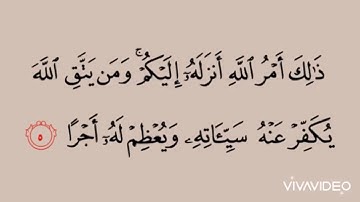 ذَٰلِكَ أَمْرُ ٱللَّهِ أَنزَلَهُۥٓ إِلَيْكُمْ ۚ وَمَن يَتَّقِ ٱللَّهَ
يُكَفِّرْ عَنْهُ سَيِّـَٔاتِهِۦ وَيُعْظِمْ لَهُۥٓ أَجْرًا ٥
VIVAVIDEO